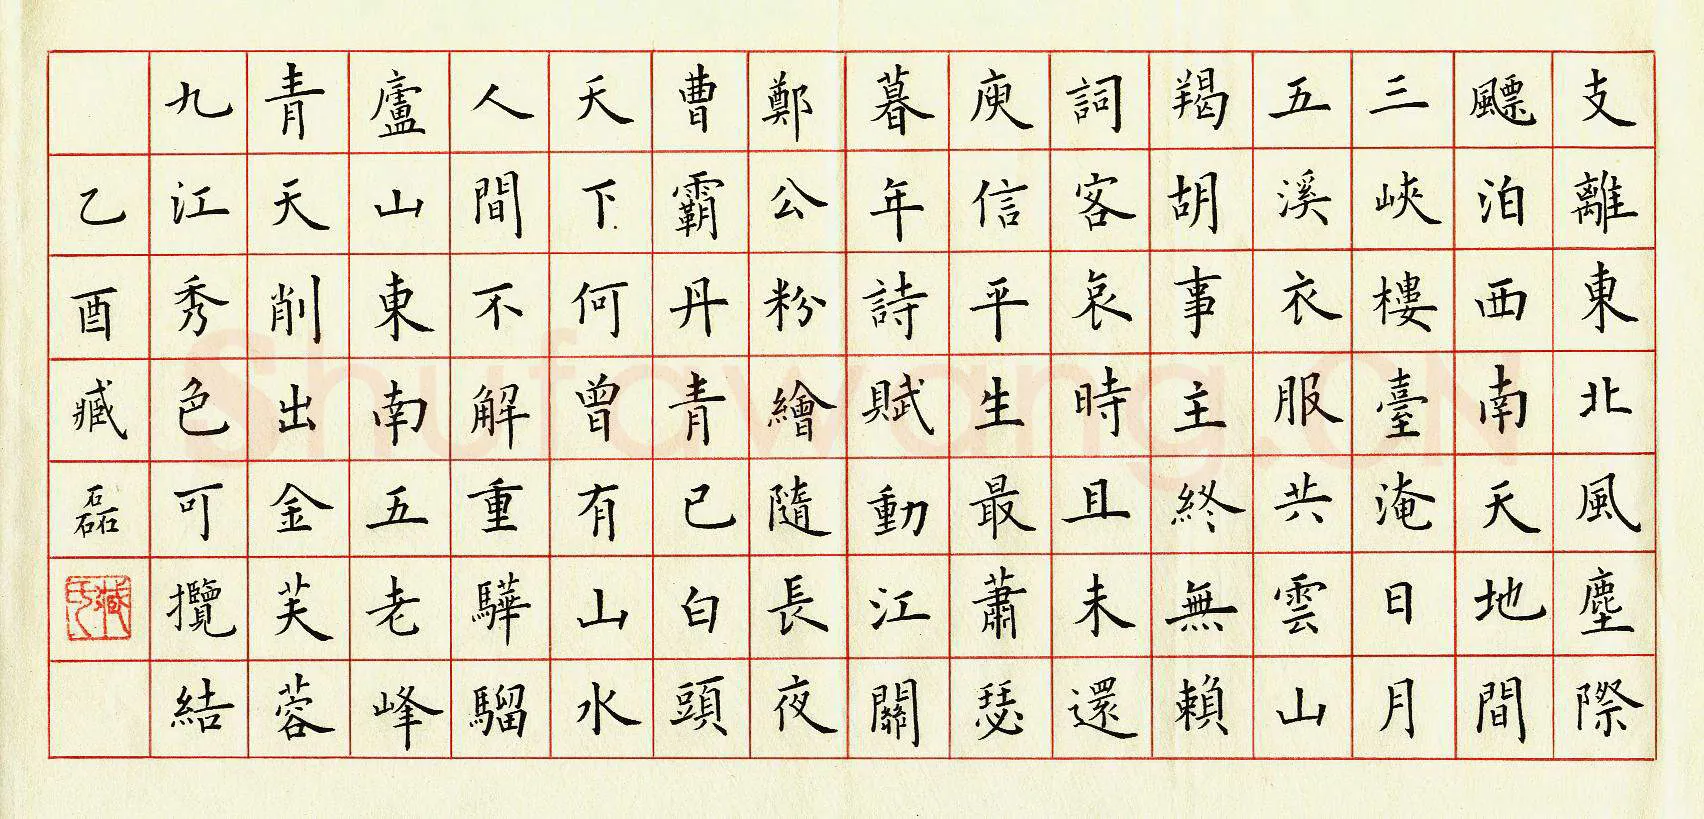 支離東北風塵際
飃泊西南天地間
三峽樓臺淹日月
五溪衣服共雲山
羯胡事主終無賴
詞客哀時且未還
庾信平生最蕭瑟
暮年詩賦動江關
鄭公粉繪隨長夜
曹霸丹青已白頭
天下何曾有山水
人間不解重驊騮
廬山東南五老峰
青天削出金芙蓉
九江秀色可攬結
乙酉臧磊
臧氏
Shufawang.CN